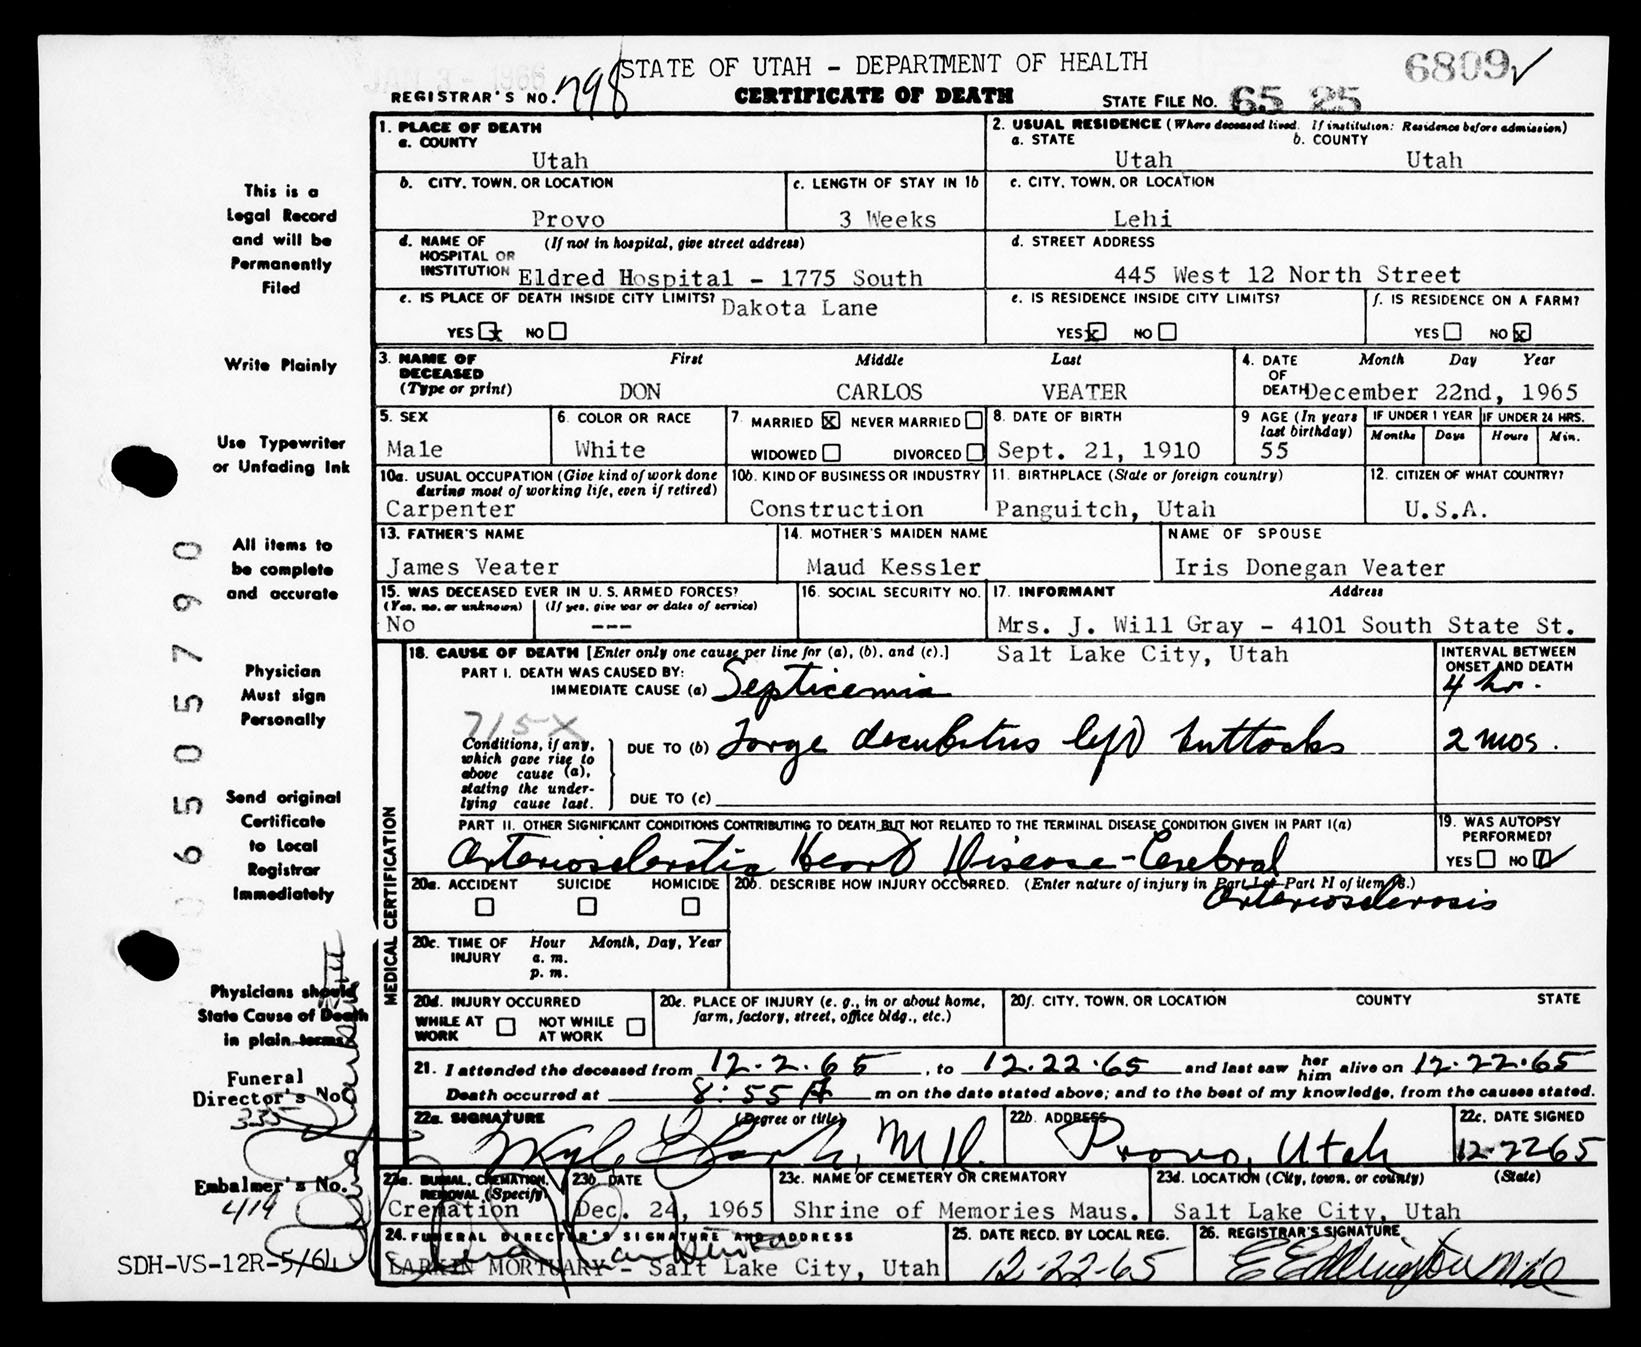 STATE OF UTAH – DEPARTMENT OF HEALTH
6809
REGISTRAR'S NO. 798
CERTIFICATE OF DEATH
STATE FILE NO. 65 25
1. PLACE OF DEATH
a. COUNTY
Utah
2. USUAL RESIDENCE (Where deceased lived. If institution: Residence before admission)
a. STATE b. COUNTY
Utah Utah
b. CITY, TOWN, OR LOCATION
Provo
c. LENGTH OF STAY IN 1b
3 Weeks
c. CITY, TOWN, OR LOCATION
Lehi
d. NAME OF HOSPITAL OR INSTITUTION (If not in hospital, give street address)
Eldred Hospital - 1775 South
Dakota Lane
d. STREET ADDRESS
445 West 12 North Street
e. IS PLACE OF DEATH INSIDE CITY LIMITS?
YES x NO
e. IS RESIDENCE INSIDE CITY LIMITS?
YES x NO
f. IS RESIDENCE ON A FARM?
YES NO x
3. NAME OF DECEASED (Type or print)
First Middle Last
DON CARLOS VEATER
4. DATE OF DEATH Month Day Year
December 22nd, 1965
5. SEX
Male
6. COLOR OR RACE
White
7. MARRIED x NEVER MARRIED
WIDOWED DIVORCED
8. DATE OF BIRTH
Sept. 21, 1910
9 AGE (In years last birthday)
55
IF UNDER 1 YEAR IF UNDER 24 HRS.
Months Days Hours Min.
10a. USUAL OCCUPATION (Give kind of work done during most of working life, even if retired)
Carpenter
10b. KIND OF BUSINESS OR INDUSTRY
Construction
11. BIRTHPLACE (State or foreign country)
Panguitch, Utah
12. CITIZEN OF WHAT COUNTRY?
U.S.A.
13. FATHER'S NAME
James Veater
14. MOTHER'S MAIDEN NAME
Maud Kessler
NAME OF SPOUSE
Iris Donegan Veater
15. WAS DECEASED EVER IN U. S. ARMED FORCES?
(Yes, no, or unknown) (If yes, give war or dates of service)
No ---
16. SOCIAL SECURITY NO.
17. INFORMANT Address
Mrs. J. Will Gray - 4101 South State St.
Salt Lake City, Utah
MEDICAL CERTIFICATION
18. CAUSE OF DEATH [Enter only one cause per line for (a), (b), and (c).]
INTERVAL BETWEEN ONSET AND DEATH
PART I. DEATH WAS CAUSED BY:
IMMEDIATE CAUSE (a) Septicemia 4 hr.
715X
Conditions, if any, which gave rise to above cause (a), stating the underlying cause last.
DUE TO (b) Large decubitus left buttocks 2 mos.
DUE TO (c)
PART II. OTHER SIGNIFICANT CONDITIONS CONTRIBUTING TO DEATH BUT NOT RELATED TO THE TERMINAL DISEASE CONDITION GIVEN IN PART I(a)
Arteriosclerotic Heart Disease - Cerebral
arteriosclerosis
19. WAS AUTOPSY PERFORMED?
YES NO
20a. ACCIDENT SUICIDE HOMICIDE
20b. DESCRIBE HOW INJURY OCCURRED. (Enter nature of injury in Part I or Part II of item 18.)
20c. TIME OF INJURY Hour Month, Day, Year
a. m.
p. m.
20d. INJURY OCCURRED
WHILE AT WORK NOT WHILE AT WORK
20e. PLACE OF INJURY (e. g., in or about home, farm, factory, street, office bldg., etc.)
20f. CITY, TOWN, OR LOCATION COUNTY STATE
21. I attended the deceased from 12-2-65, to 12-22-65 and last saw her him alive on 12-22-65
Death occurred at 8:55 A m on the date stated above; and to the best of my knowledge, from the causes stated.
22a. SIGNATURE (Degree or title)
M.D.
22b. ADDRESS
Provo, Utah
22c. DATE SIGNED
12-22-65
23a. BURIAL, CREMATION, REMOVAL (Specify)
Cremation
23b DATE
Dec. 24, 1965
23c. NAME OF CEMETERY OR CREMATORY
Shrine of Memories Maus.
23d. LOCATION (City, town, or county) (State)
Salt Lake City, Utah
24. FUNERAL DIRECTOR'S SIGNATURE AND ADDRESS
LARKIN MORTUARY - Salt Lake City, Utah
25. DATE RECD. BY LOCAL REG.
12-22-65
26. REGISTRAR'S SIGNATURE
This is a
Legal Record
and will be
Permanently
Filed
Write Plainly
Use Typewriter
or Unfading Ink
All items to
be complete
and accurate
Physician
Must sign
Personally
Send original
Certificate
to Local
Registrar
Immediately
Physicians should
State Cause of Death
in plain terms
Funeral
Director's No.
335
Embalmer's No.
419
SDH-VS-12R-5/64
0 6 5 0 5 7 9 0